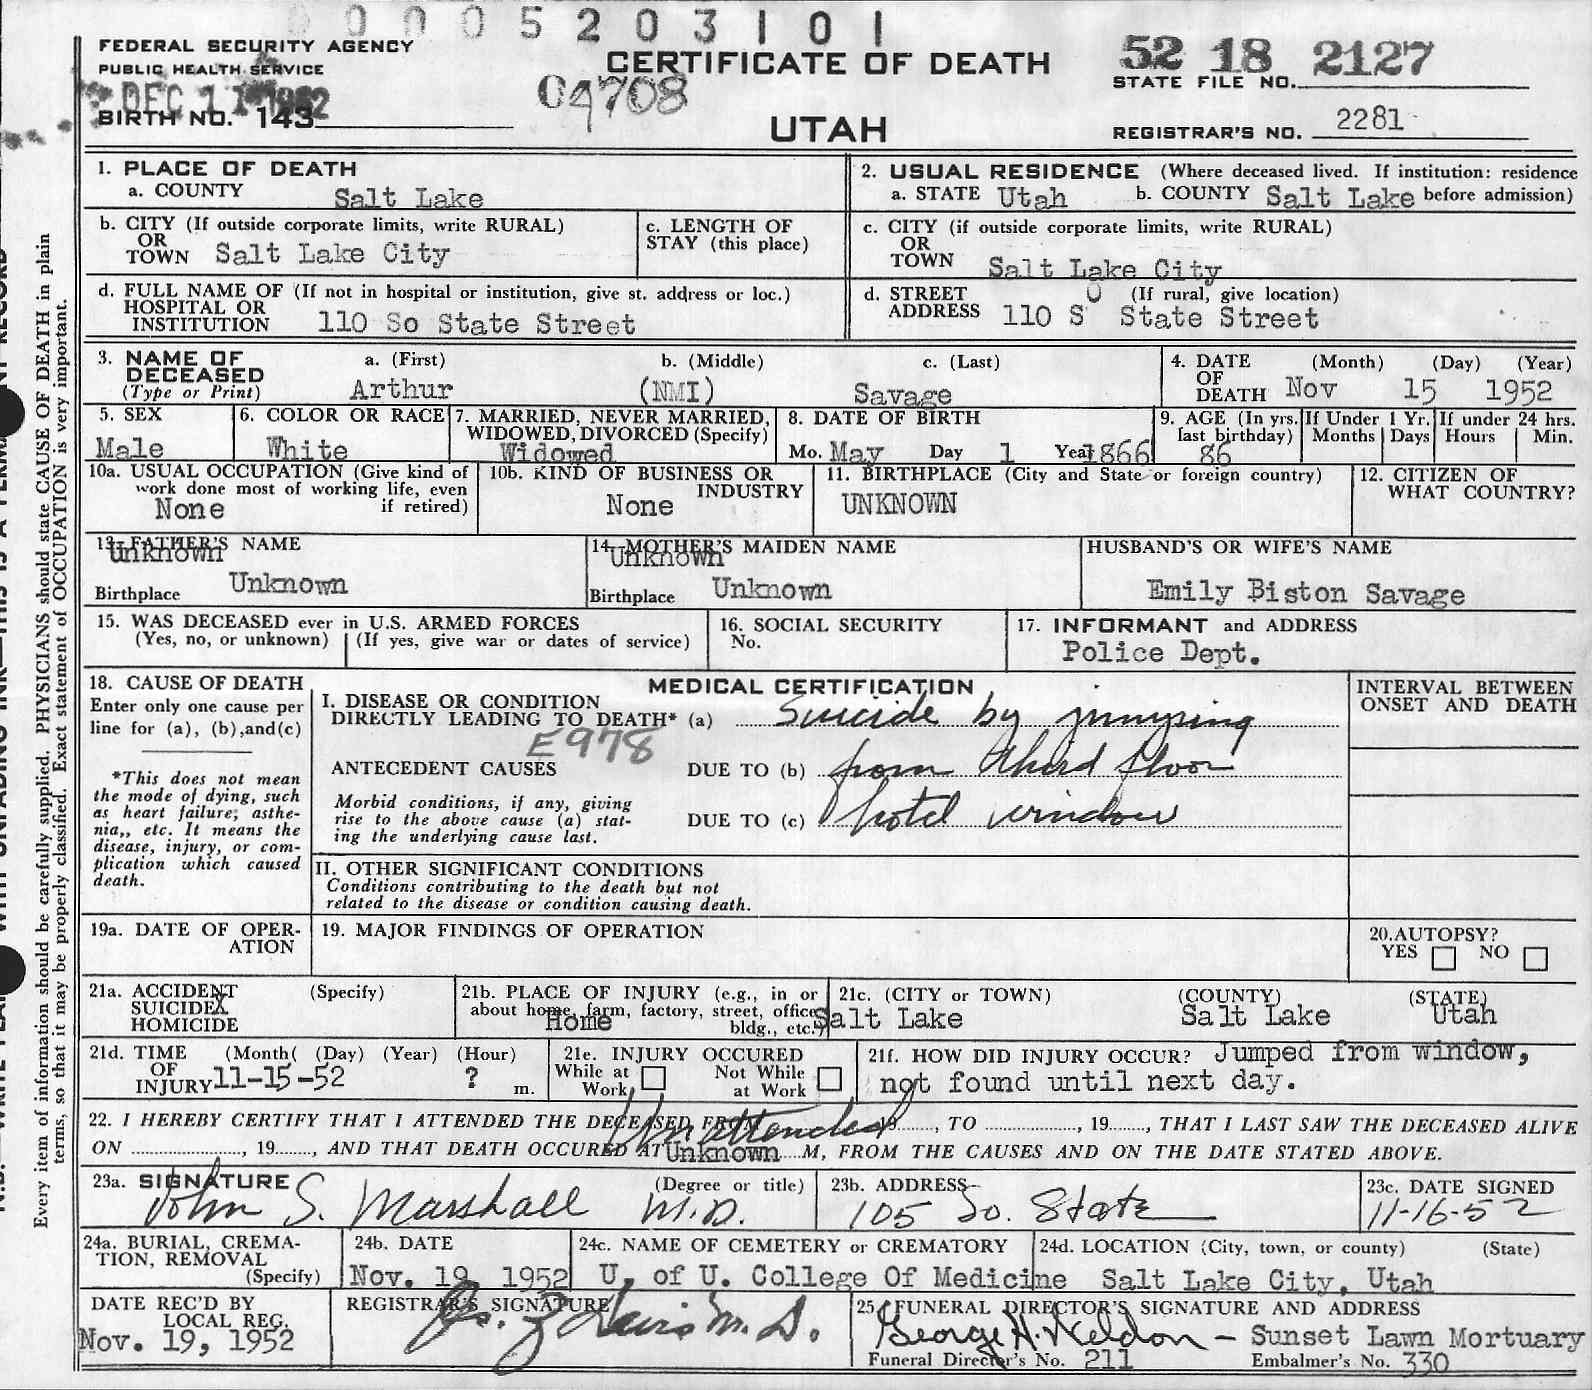 0 0 0 5 2 0 3 1 0 1
FEDERAL SECURITY AGENCY
PUBLIC HEALTH SERVICE
DEC 11 1952
BIRTH NO. 143
CERTIFICATE OF DEATH
04708
UTAH
52 18 2127
STATE FILE NO.
REGISTRAR'S NO. 2281
1. PLACE OF DEATH
a. COUNTY Salt Lake
2. USUAL RESIDENCE (Where deceased lived. If institution: residence
a. STATE Utah b. COUNTY Salt Lake before admission)
b. CITY (If outside corporate limits, write RURAL)
OR
TOWN Salt Lake City
c. LENGTH OF
STAY (this place)
c. CITY (if outside corporate limits, write RURAL)
OR
TOWN Salt Lake City
d. FULL NAME OF (If not in hospital or institution, give st. address or loc.)
HOSPITAL OR
INSTITUTION 110 So State Street
d. STREET (If rural, give location)
ADDRESS 110 SO State Street
3. NAME OF DECEASED
(Type or Print)
a. (First) b. (Middle) c. (Last)
Arthur (NMI) Savage
4. DATE OF DEATH (Month) (Day) (Year)
Nov 15 1952
5. SEX
Male
6. COLOR OR RACE
White
7. MARRIED, NEVER MARRIED,
WIDOWED, DIVORCED (Specify)
Widowed
8. DATE OF BIRTH
Mo. May Day 1 Year 1866
9. AGE (In yrs. last birthday)
86
If Under 1 Yr. Months Days
If under 24 hrs. Hours Min.
10a. USUAL OCCUPATION (Give kind of
work done most of working life, even
if retired)
None
10b. KIND OF BUSINESS OR
INDUSTRY
None
11. BIRTHPLACE (City and State or foreign country)
UNKNOWN
12. CITIZEN OF
WHAT COUNTRY?
13. FATHER'S NAME
Unknown
Birthplace Unknown
14. MOTHER'S MAIDEN NAME
Unknown
Birthplace Unknown
HUSBAND'S OR WIFE'S NAME
Emily Biston Savage
15. WAS DECEASED ever in U.S. ARMED FORCES
(Yes, no, or unknown) (If yes, give war or dates of service)
16. SOCIAL SECURITY
No.
17. INFORMANT and ADDRESS
Police Dept.
18. CAUSE OF DEATH
Enter only one cause per
line for (a), (b), and (c)
*This does not mean
the mode of dying, such
as heart failure, asthe-
nia,, etc. It means the
disease, injury, or com-
plication which caused
death.
MEDICAL CERTIFICATION
I. DISEASE OR CONDITION
DIRECTLY LEADING TO DEATH* (a) Suicide by jumping
E978
ANTECEDENT CAUSES DUE TO (b) from third floor
Morbid conditions, if any, giving
rise to the above cause (a) stat-
ing the underlying cause last.
DUE TO (c) hotel window
INTERVAL BETWEEN
ONSET AND DEATH
II. OTHER SIGNIFICANT CONDITIONS
Conditions contributing to the death but not
related to the disease or condition causing death.
19a. DATE OF OPER-
ATION
19. MAJOR FINDINGS OF OPERATION
20. AUTOPSY?
YES NO
21a. ACCIDENT (Specify)
SUICIDE X
HOMICIDE
21b. PLACE OF INJURY (e.g., in or
about home, farm, factory, street, office
bldg., etc.)
Home
21c. (CITY or TOWN) (COUNTY) (STATE)
Salt Lake Salt Lake Utah
21d. TIME (Month( (Day) (Year) (Hour)
OF
INJURY 11-15-52 ? m.
21e. INJURY OCCURED
While at Work Not While at Work
21f. HOW DID INJURY OCCUR? Jumped from window,
not found until next day.
22. I HEREBY CERTIFY THAT I ATTENDED THE DECEASED FROM Unattended, TO, 19, THAT I LAST SAW THE DECEASED ALIVE
ON, 19, AND THAT DEATH OCCURED AT Unknown M, FROM THE CAUSES AND ON THE DATE STATED ABOVE.
23a. SIGNATURE (Degree or title)
John S. Marshall M.D.
23b. ADDRESS
105 So. State
23c. DATE SIGNED
11-16-52
24a. BURIAL, CREMA-
TION, REMOVAL
(Specify)
24b. DATE
Nov. 19, 1952
24c. NAME OF CEMETERY or CREMATORY
U. of U. College Of Medicine
24d. LOCATION (City, town, or county) (State)
Salt Lake City, Utah
DATE REC'D BY
LOCAL REG.
Nov. 19, 1952
REGISTRAR'S SIGNATURE
M.D.
25. FUNERAL DIRECTOR'S SIGNATURE AND ADDRESS
George H. Weldon - Sunset Lawn Mortuary
Funeral Director's No. 211 Embalmer's No. 330
Every item of information should be carefully supplied. PHYSICIANS should state CAUSE OF DEATH in plain
terms, so that it may be properly classified. Exact statement of OCCUPATION is very important.